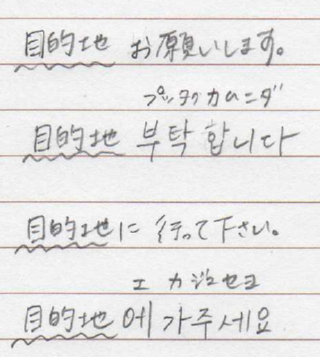 目的地 お願いします。
プッタクカムニダ
目的地 부탁합니다
目的地に 行って下さい。
エ カジュセヨ
目的地에 가주세요